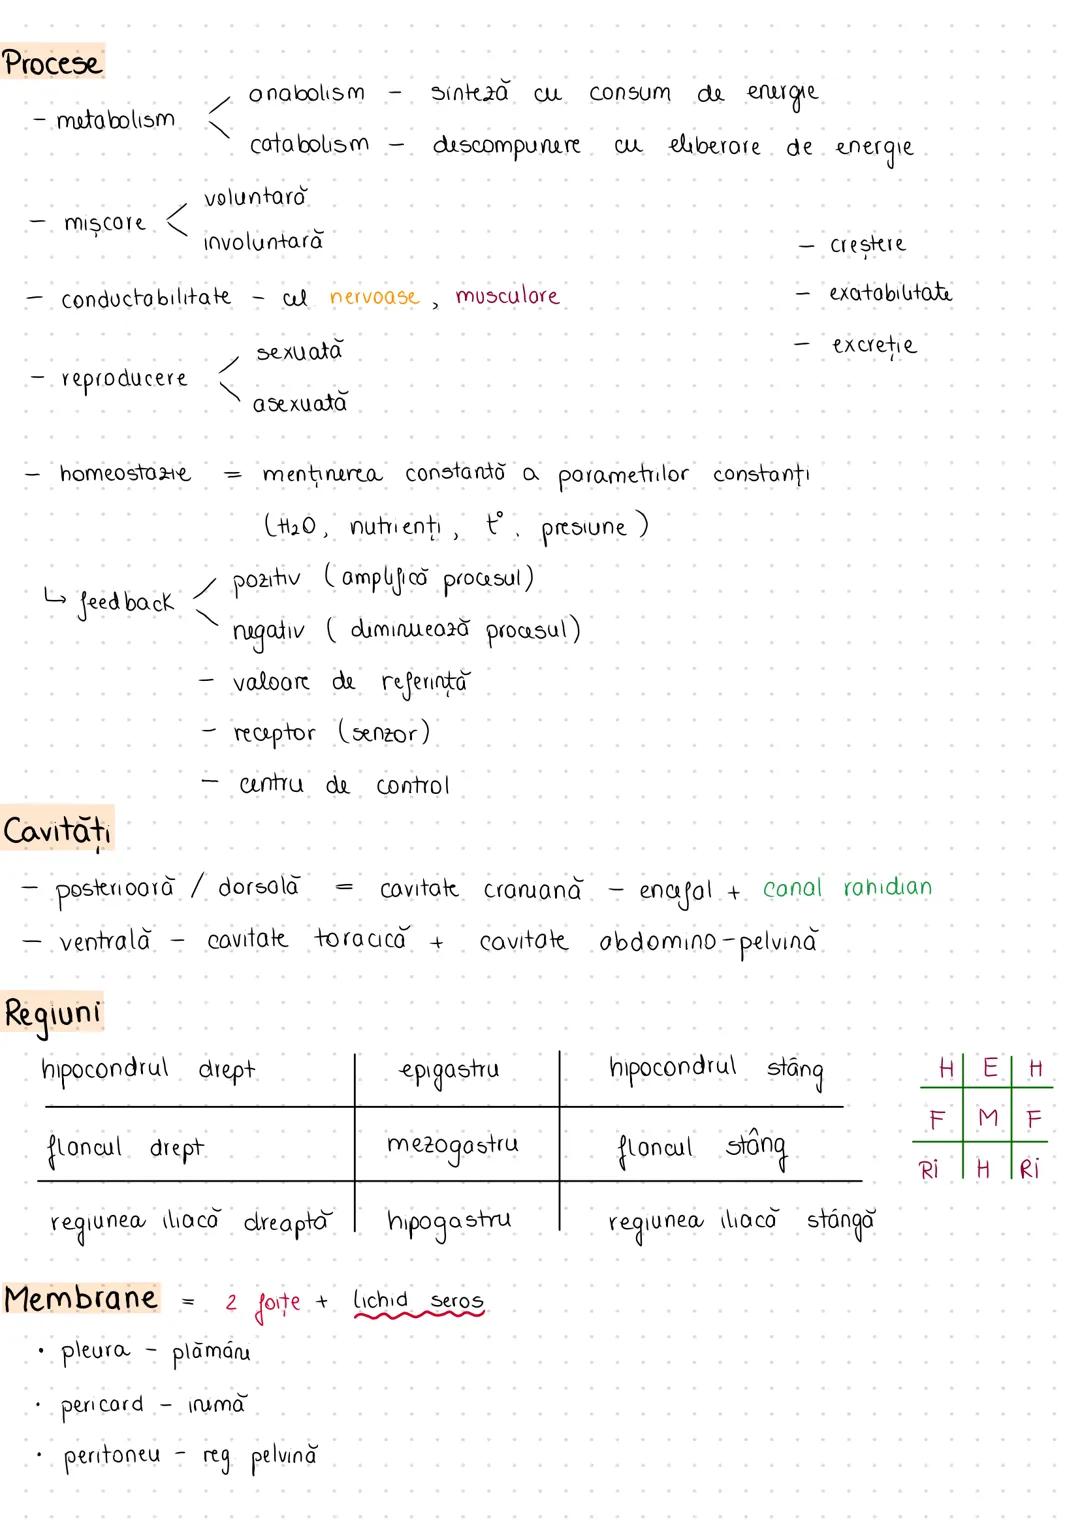 Procese
anabolism - sinteză cu consum de energie
- metabolism
catabolism - descompunere cu eliberare de energie
voluntară
- mișcare
involuntară
- creștere
- conductabilitate - cel nervoase, musculare
- exatabilitate
- excreție
sexuată
- reproducere
asexuată
- homeostazie = menținerea constantă a parametrilor constanți
(H₂O, nutrienți, t°, presiune)
pozitiv (amplifică procesul)
↳ feedback
negativ (diminuează procesul)
- valoare de referință
- receptor (senzor)
- centru de control
Cavități
- posterioară / dorsală = cavitate craniană - encefal + canal rahidian
- ventrală - cavitate toracică + cavitate abdomino-pelvină
Regiuni
hipocondrul drept epigastru hipocondrul stâng
H E H
flancul drept mezogastru flancul stâng
F M F
Ri H Ri
regiunea iliacă dreaptă hipogastru regiunea iliacă stângă
Membrane = 2 foițe + lichid seros
• pleura - plămâni
• pericard - inimă
• peritoneu - reg pelvină